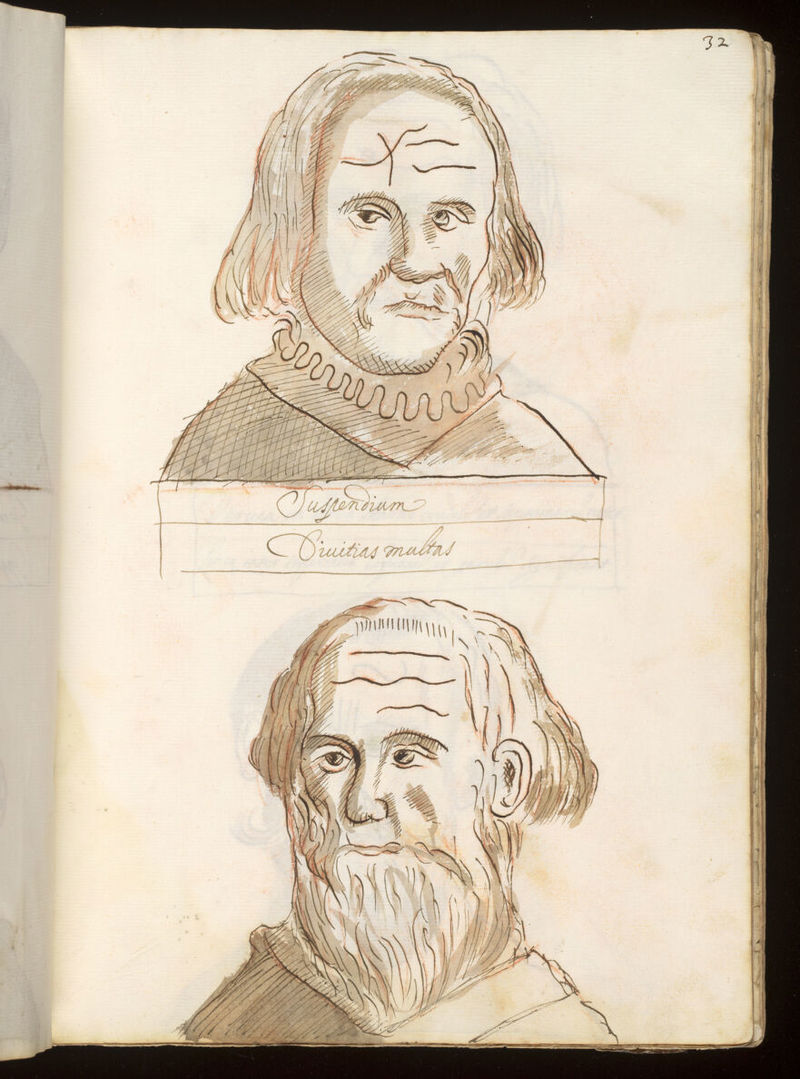 32
Suspendium
Diuitias multas